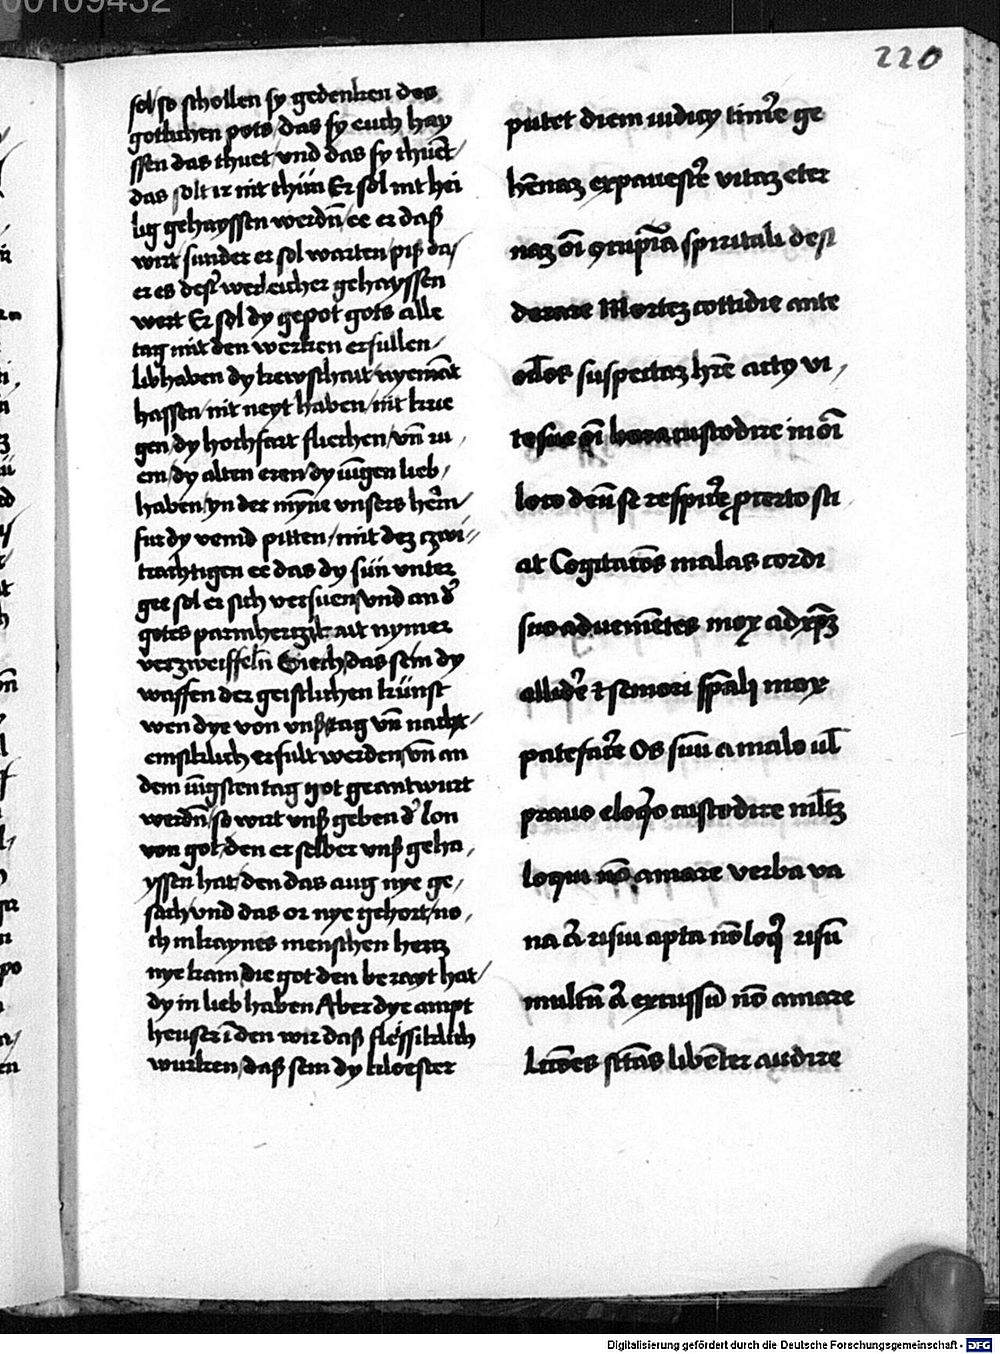 220
sol so schollen sy gedenken des
gotlichen pots das sy euch hay
ssen das thuet/vnd das sy thuet/
das solt ir nit thün Er sol nit hei
lig gehayssen werdn̄/ee er daß
wirt sunder er sol warten/piß da/
er es des͛ werleicher gehayssen
wert Er sol dy gepot gots alle
tag mit den werken erfullen/
libhaben dy kewschait nyema͞t
hassen/nit neyt haben/nit krie
gen/dy hochfart fliechen/vn̄ iu,
em/dy alten eren/dy iu͞gen lieb/
haben/yn der my͞ne vnsers her̄n/
fur dy veind pitten/mit deʒ czwi//
trachtigen ee das dy sün̄ vnter
gee sol er sich versuen/vnd an d͛
gotes parmherczikait nymer
verzweiffeln̄ Siech/das sein dy
waffen der geistlichen künst
wen dye von vnß/tag vn̄ nacht/
emsiklich erfult werden/vn̄ an
dem iu͞gsten tag got geantwurt
werdn̄/so wirt vnß geben d͛ lon
von got/den er selber vnß geha,
yssen hat/den das aug nye ge/
sach/vnd das or nye gehort/no,
ch in kaynes menschen hertz
nye kam/die got den berayt hat/
dy in lieb haben Aber dye ampt
heuser i͞ den wir daß flessiklich
wurken/daß sein dy kloester
putet diem iudicÿ tim͛e ge
he͞naʒ expauesc͛e vitaʒ eter
naʒ o͞i ꝯcupi͞a spirituali desi
derare Morteʒ cottidie ante
oc͞los suspectaʒ hr͞e actꝯ vi,
te sue o͞i hora custodire in o͞i
loco deū se respic͛e ꝓ certo sci
at Cogitaco͞es malas cordi
suo aduenie͞tes mox ad xp͞ʒ
allid͛e ⁊ seniori sp͞ali mox
patefac͛e Os suū a malo ul͞
prauo eloq͛o custodire ml͞tʒ
loqui no͞ amare verba va
na a͞ risiu apta no͞ loq͛ risū
multū a͞ excussū no͞ amare
Lcc͞oes sc͞tas libe͞ter audire
Digitalisierung gefördert durch die Deutsche Forschungsgemeinschaft - DFG